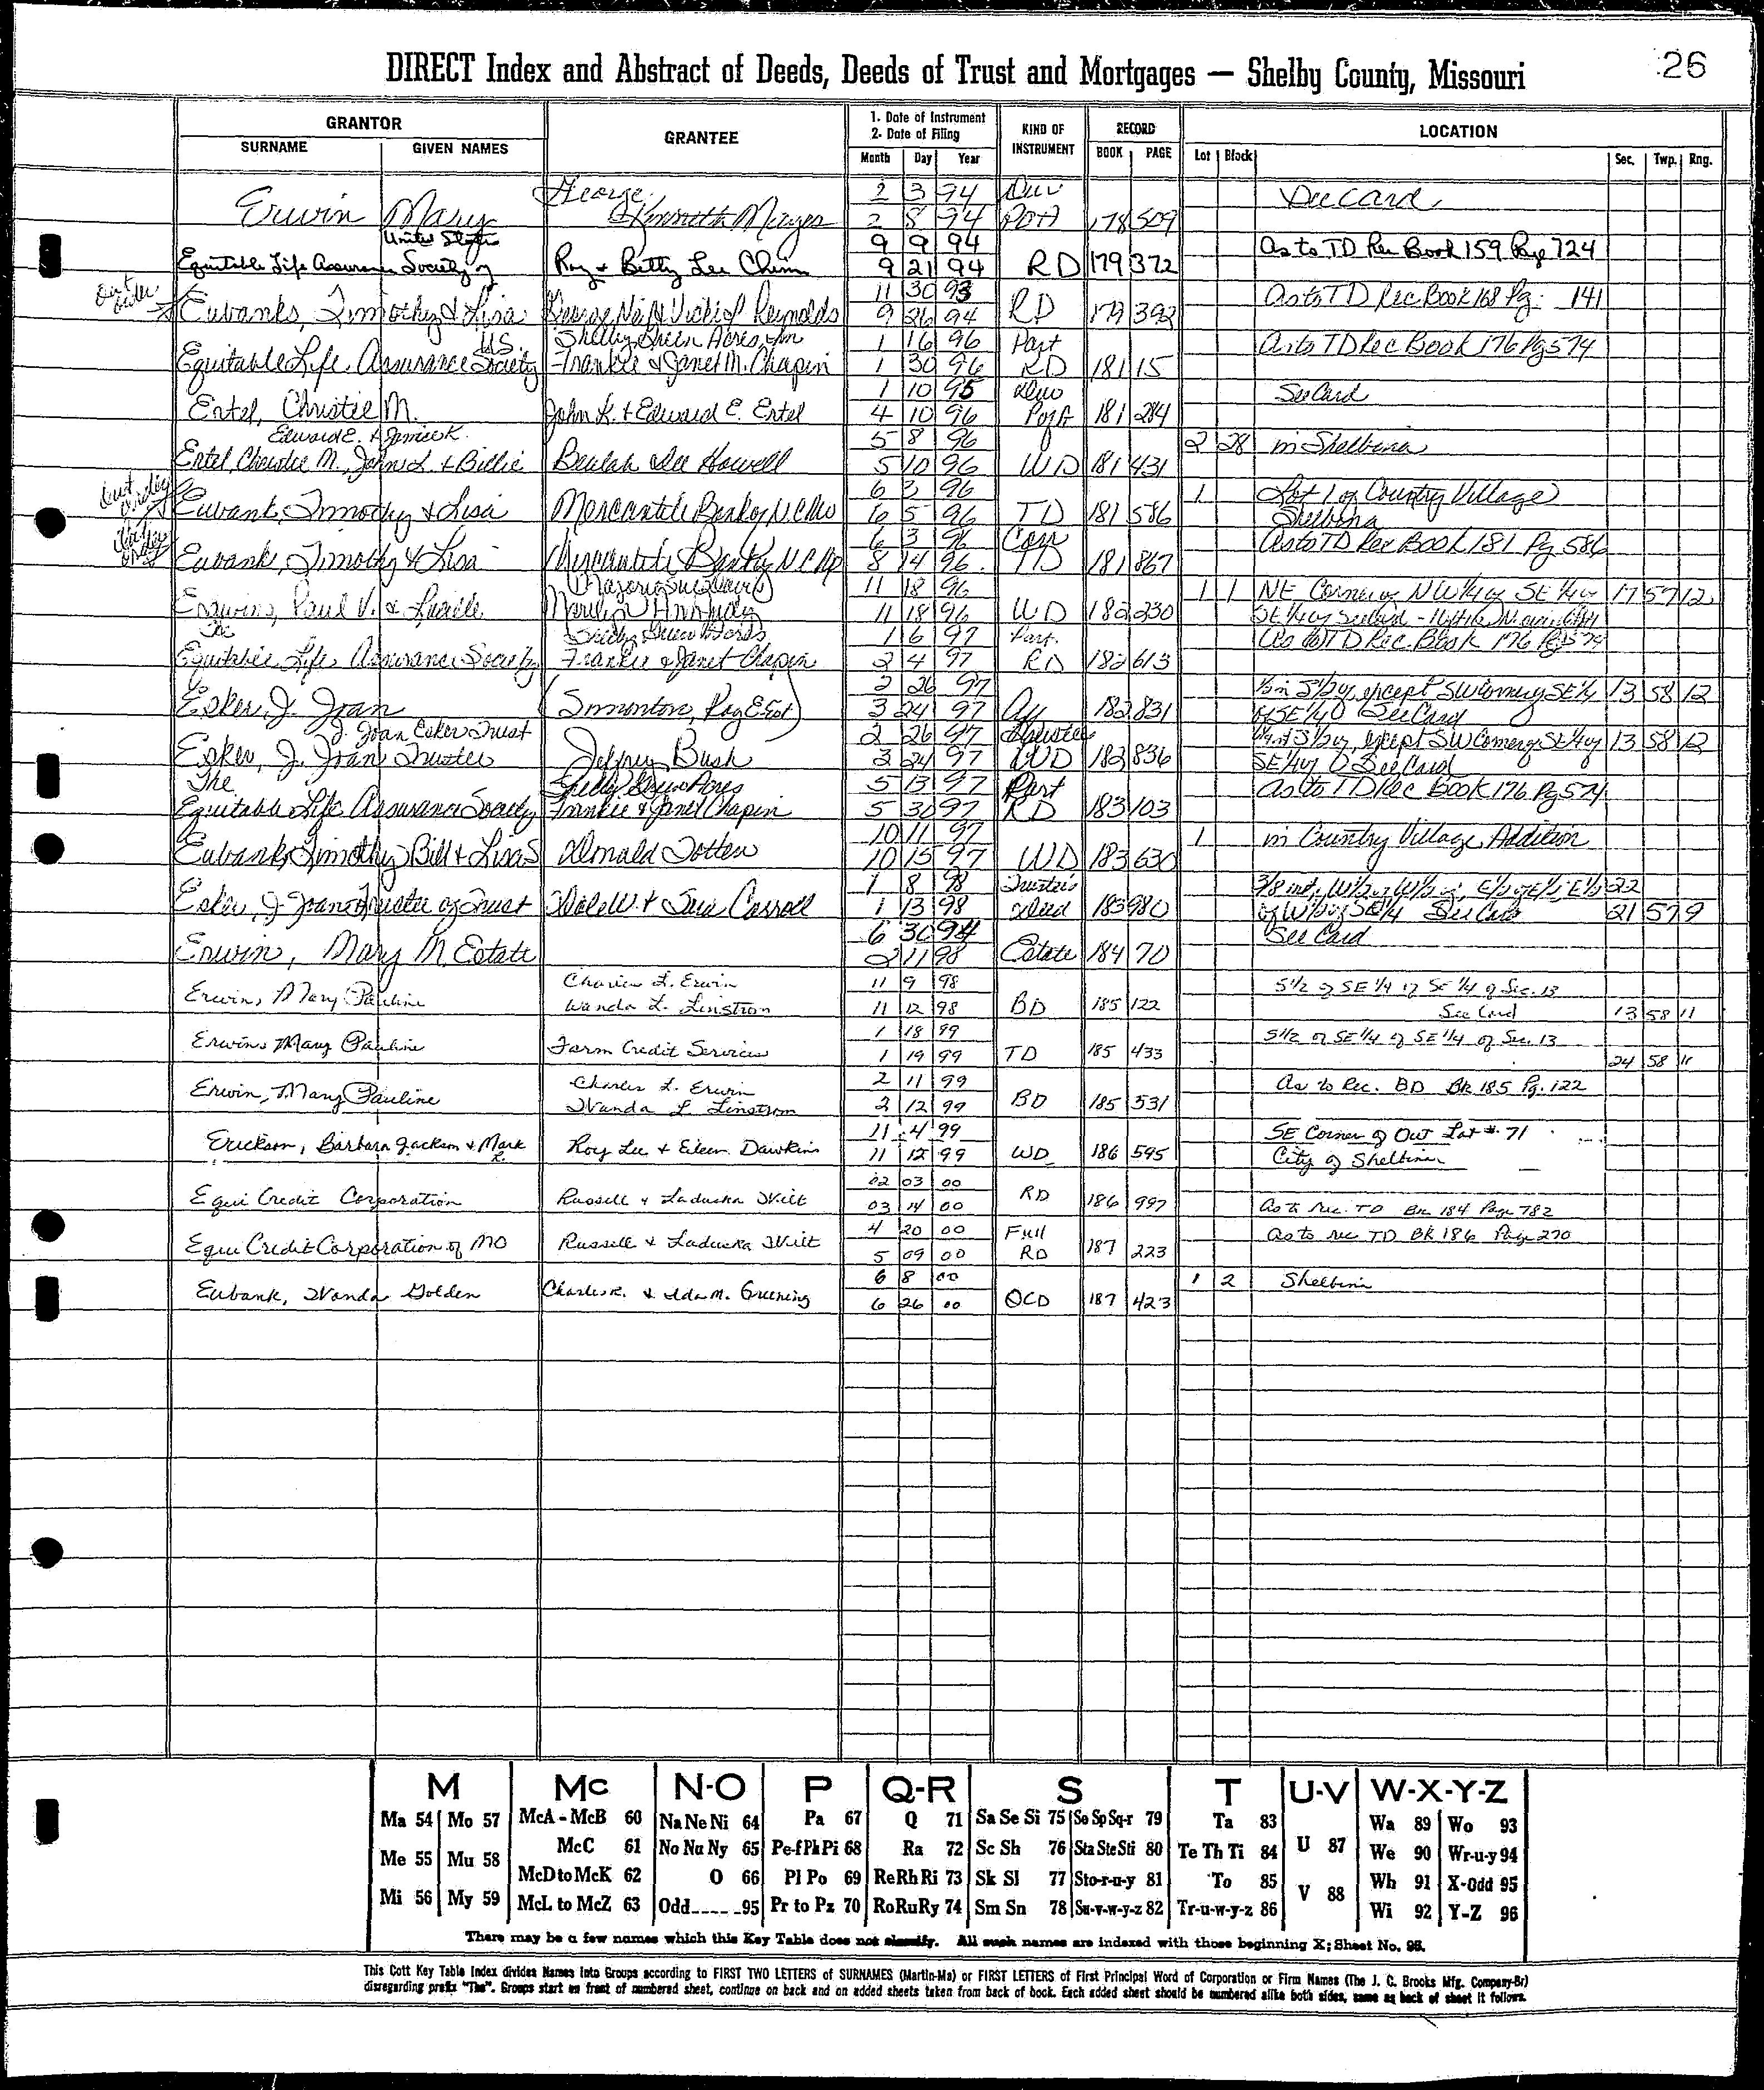 DIRECT Index and Abstract of Deeds, Deeds of Trust and Mortgages — Shelby County, Missouri
26
GRANTOR
SURNAME GIVEN NAMES
GRANTEE
1. Date of Instrument
2. Date of Filing
Month Day Year
KIND OF INSTRUMENT
RECORD
BOOK PAGE
LOCATION
Lot Block Sec. Twp. Rng.
George 2 3 94 See Card
Erwin Mary Kenneth 2 8 94 178 509
United States 9 9 94 As to TD Rec Book 159 Page 724
Equitable Life Assurance Society of Roy & Betty Lee Chinn 9 21 94 RD 179 372
Out
11 30 93 As to TD Rec Book 168 Pg. 141
Eubanks, Timothy & Lisa Vicki Reynolds 9 26 94 RD 179 392
U.S. Shelby Green Acres, Inc 1 16 96 Part As to TD Rec Book 176 Pg 574
Equitable Life Assurance Society Frankie & Janet M. Chapin 1 30 96 RD 181 15
1 10 95 See Card
Ertel, Christie M. John L. & Edward E. Ertel 4 10 96 181 284
Edward E. & Janice K. 5 8 96 2 28 in Shelbina
Ertel, M., John L. & Billie Beulah Howell 5 10 96 WD 181 431
Out
6 3 96 1 Lot 1 of Country Village
Eubank, Timothy & Lisa Mercantile Bank of NC Mo 6 5 96 TD 181 586 Shelbina
6 3 96 As to TD Rec Book 181 Pg 586
Eubank, Timothy & Lisa Mercantile Bank of NC Mo 8 14 96 TD 181 867
11 18 96 1 1 NE Corner of NW 1/4 of SE 1/4 of 17 57 12
Paul V. & Lucille Marilyn 11 18 96 WD 182 230 SE 1/4 of
The 1 6 97 Part. As to TD Rec. Book 176 Pg 574
Equitable Life Assurance Society Frankie & Janet Chapin 2 4 97 RD 182 613
2 26 97 except SW corner of SE 1/4 13 58 12
Esker, J. Joan (Simonton, Roy E Est) 3 24 97 Aff 182 831 of SE 1/4 See Card
J. Joan Esker Trust 2 26 97 Trustee except SW Corner of SE 1/4 of 13 58 12
Esker, J. Joan Trustee Jeffrey Bush 3 24 97 WD 182 836 SE 1/4 See Card
The Shelby Green Acres 5 13 97 Part As to TD Rec Book 176 Pg 574
Equitable Life Assurance Society Frankie & Janet Chapin 5 30 97 RD 183 103
10 11 97 1 in Country Village Addition
Eubank, Timothy Bill & Lisa S Donald Totten 10 15 97 WD 183 630
1 8 98 Trustee's 3/8 int, W 1/2 of W 1/2 of, E 1/2 of E 1/2, E 1/2 22
Esker, J. Joan Trustee of Trust Dale W. & Sue Carroll 1 13 98 Deed 183 980 of W 1/2 of SE 1/4 See Card 21 57 9
6 30 94 See Card
Erwin, Mary M. Estate 2 11 98 Estate 184 70
Charles L. Erwin 11 9 98 S 1/2 of SE 1/4 of SE 1/4 of Sec. 13
Erwin, Mary Pauline Wanda L. Linstrom 11 12 98 BD 185 122 See Card 13 58 11
1 18 99 S 1/2 of SE 1/4 of SE 1/4 of Sec. 13
Erwin, Mary Pauline Farm Credit Services 1 19 99 TD 185 433 24 58 11
Charles L. Erwin 2 11 99 As to Rec. BD Bk 185 Pg. 122
Erwin, Mary Pauline Wanda L Linstrom 2 12 99 BD 185 531
11 4 99 SE Corner of Out Lot # 71
Erickson, Barbara Jackson & Mark R. Roy Lee & Eileen Dawkins 11 12 99 WD 186 595 City of Shelbina
02 03 00
Equi Credit Corporation Russell & Laducka Wilt 03 14 00 RD 186 997 As to rec. TD Bk 184 Page 782
4 20 00 Full As to rec TD BK 186 Page 270
Equi Credit Corporation of MO Russell & Laducka Wilt 5 09 00 RD 187 223
6 8 00 1 2 Shelbina
Eubank, Wanda Golden Charles R. & Ida M. Greening 6 26 00 QCD 187 423
M Mc N-O P Q-R S T U-V W-X-Y-Z
Ma 54 Mo 57 McA - McB 60 Na Ne Ni 64 Pa 67 Q 71 Sa Se Si 75 So Sp Sq-r 79 Ta 83 Wa 89 Wo 93
McC 61 No Nu Ny 65 Pe-f Ph Pi 68 Ra 72 Sc Sh 76 Sta Ste Sti 80 Te Th Ti 84 U 87
Me 55 Mu 58 We 90 Wr-u-y 94
McD to McK 62 O 66 Pl Po 69 Re Rh Ri 73 Sk Sl 77 Sto-r-u-y 81 To 85 Wh 91 X-Odd 95
Mi 56 My 59 McL to McZ 63 Odd 95 Pr to Pz 70 Ro Ru Ry 74 Sm Sn 78 Su-v-w-y-z 82 Tr-u-w-y-z 86 V 88 Wi 92 Y-Z 96
There may be a few names which this Key Table does not classify. All such names are indexed with those beginning X; Sheet No. 95.
This Cott Key Table Index divides Names into Groups according to FIRST TWO LETTERS of SURNAMES (Martin-Ma) or FIRST LETTERS of First Principal Word of Corporation or Firm Names (The J. C. Brooks Mfg. Company-Br)
disregarding prefix "The". Groups start on front of numbered sheet, continue on back and on added sheets taken from back of book. Each added sheet should be numbered alike both sides, same as back of sheet it follows.